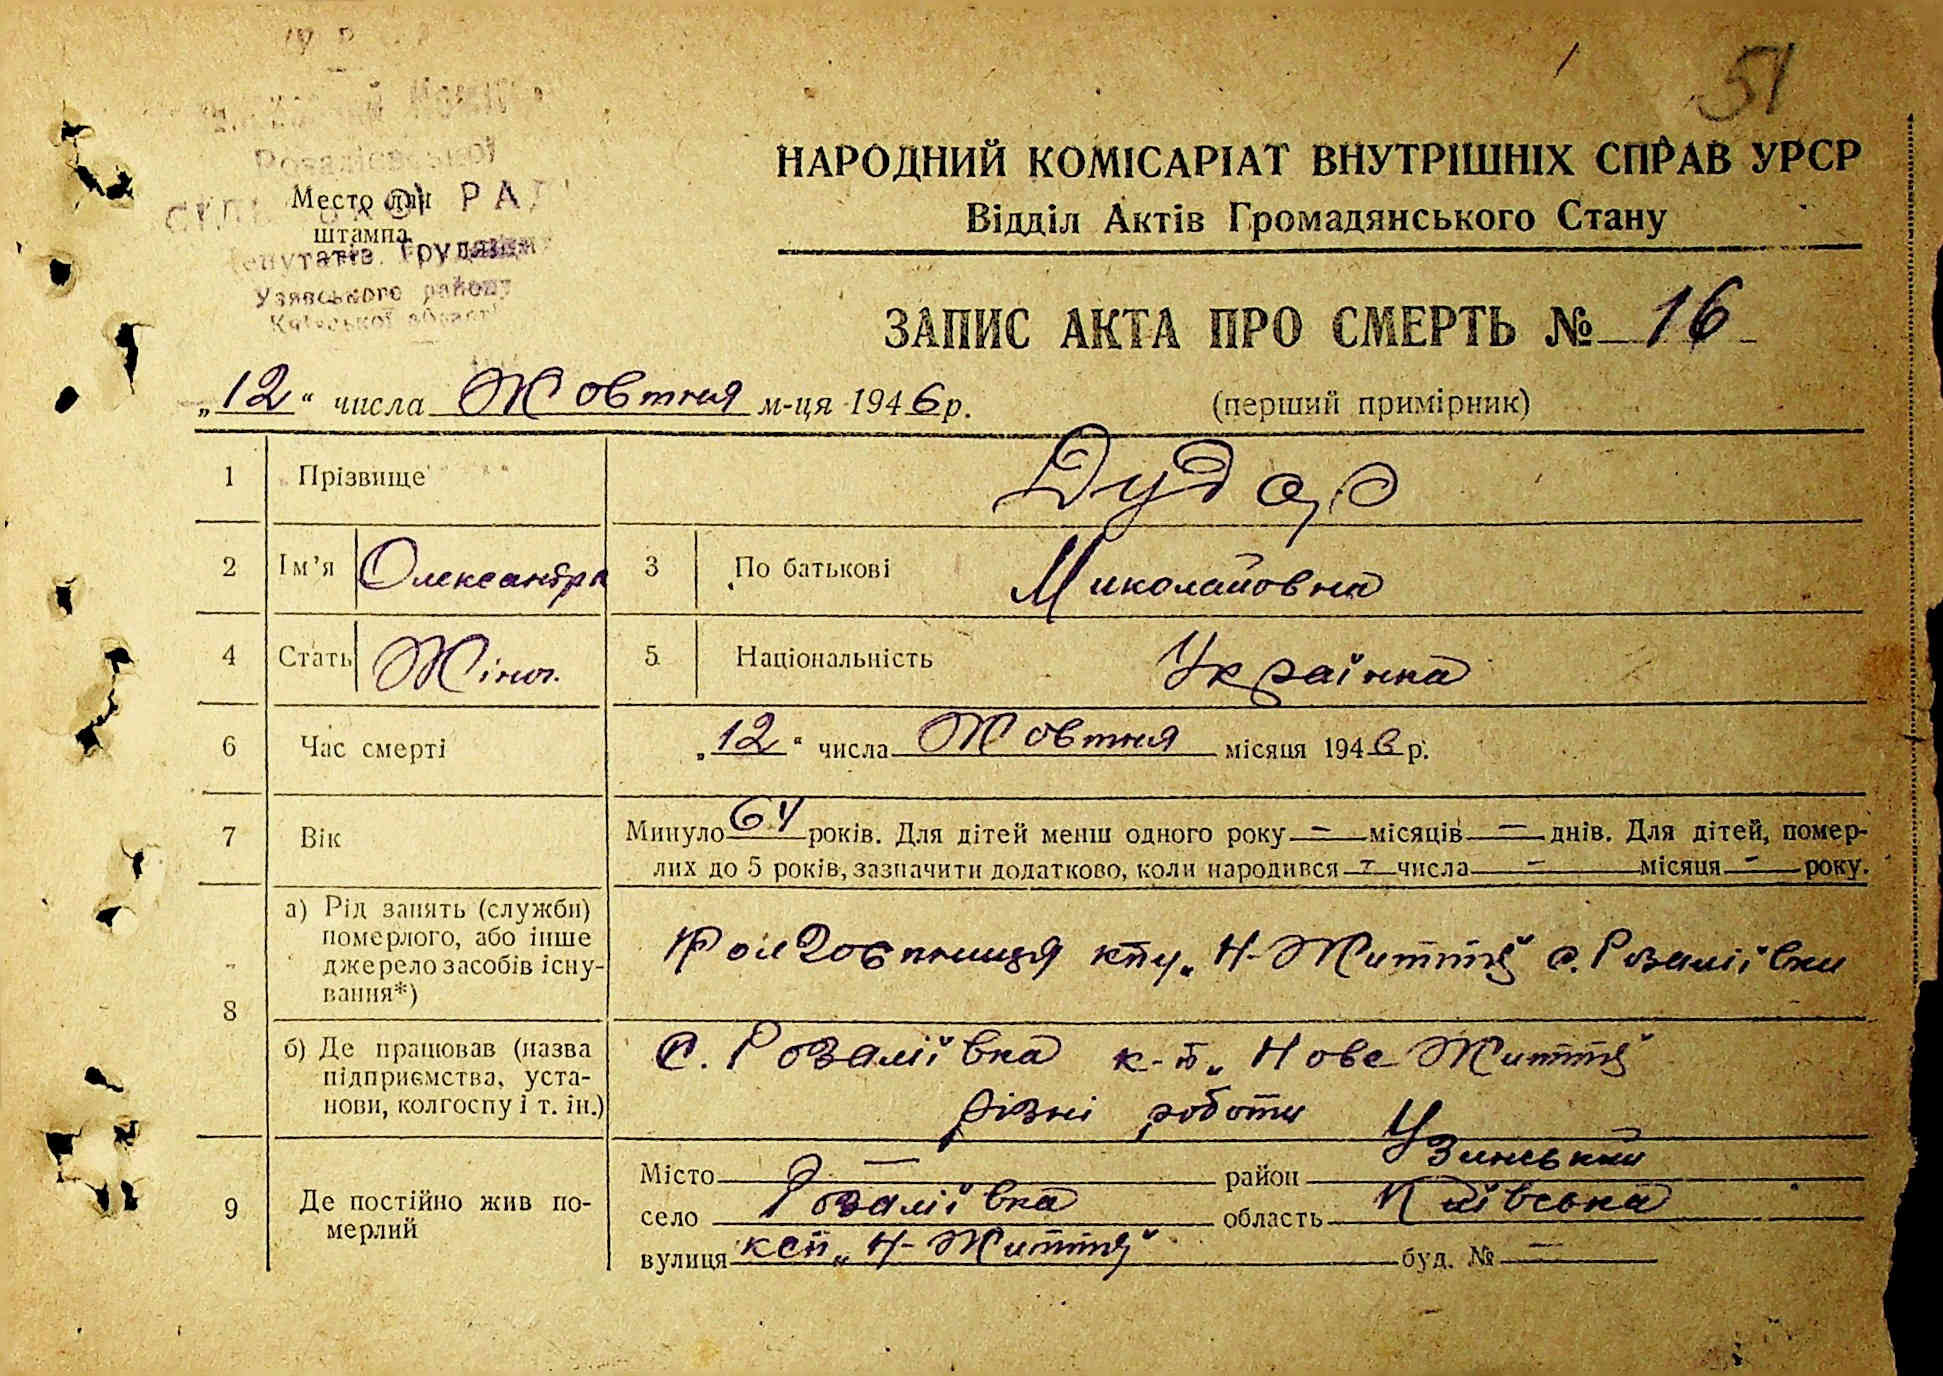 51
Розаліївської
Место для
штампа
РАД
депутатів Трудящих
Узинського району
Київської області
НАРОДНИЙ КОМІСАРІАТ ВНУТРІШНІХ СПРАВ УРСР
Відділ Актів Громадянського Стану
ЗАПИС АКТА ПРО СМЕРТЬ № 16
„12“ числа Жовтня м-ця 1946 р. (перший примірник)
1 Прізвище Дудар
2 Ім'я Олександра 3 По батькові Миколайовна
4 Стать Жіноч. 5 Національність Українка
6 Час смерті „12“ числа Жовтня місяця 1946 р.
7 Вік Минуло 64 років. Для дітей менш одного року — місяців — днів. Для дітей, помер-
лих до 5 років, зазначити додатково, коли народився — числа — місяця — року.
8 а) Рід занять (служби)
померлого, або інше
джерело засобів існу-
вання*)
Колгоспниця "Н-Життя" с. Розаліївки
б) Де працював (назва
підприємства, уста-
нови, колгоспу і т. ін.)
с. Розаліївка к-п „Нове Життя"
різні роботи
9 Де постійно жив по-
мерлий
Місто — район Узинський
село Розаліївка область Київська
вулиця ксп „Н-Життя" буд. № —